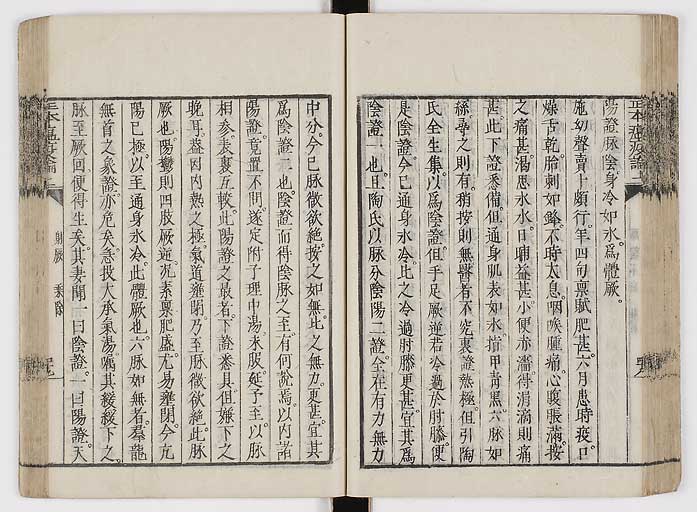 陽證脉陰身冷如水。爲體厥。
施幼聲賣卜頗行年四旬禀賦肥甚六月患時疫口
燥舌乾胎刺如鋒不時太息咽喉腫痛心腹脹滿按
之痛甚渴思水水日晡益甚小便赤澀得涓滴則痛
甚此下證悉備但通身肌表如水指甲青黑六脉如
絲尋之則有稍按則無醫者不究裏證熱極但引陶
氏全生集以爲陰證但手足厥逆若冷過於肘膝便
是陰證今已通身氷冷比之冷過肘膝更甚宜其爲
陰證一也且陶氏以脉分陰陽二證全在有力無力
中分今已脉微欲絶按之如無比之無力更甚宜其
爲陰證二也陰證而得陰脉之至有何説焉以内諸
陽證竟置不問遂定附子理中湯未服延予至以脉
相參表裏互較此陽證之最者下證悉具但嫌下之
晩耳葢因内熱之極氣道壅閉乃至脉微欲絶此脉
厥也陽鬱則四肢厥逆况素禀肥盛尤易壅閉今亢
陽已極以至通身氷冷此體厥也六脉如無者羣龍
無首之象證亦危矣急投大承氣湯嘱其緩緩下之
脉至厥回便得生矣其妻聞一曰陰證一曰陽證天